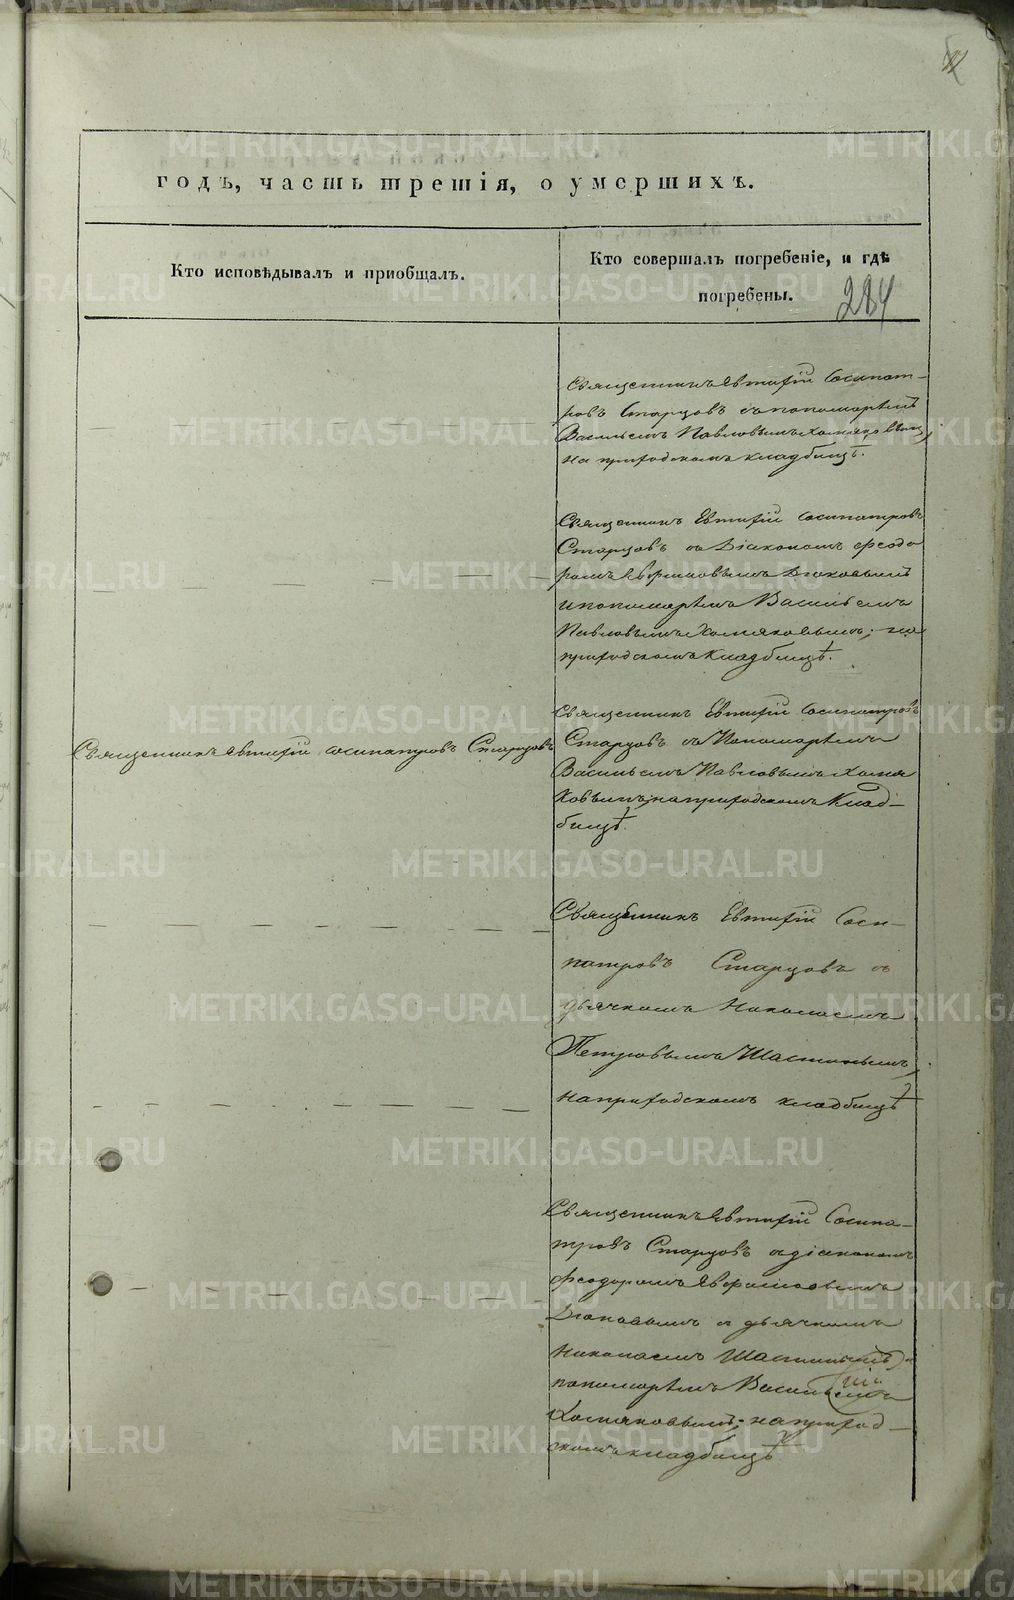 годъ, часть третія, о умершихъ.
Кто исповѣдывалъ и пріобщалъ.
Кто совершалъ погребеніе, и гдѣ
погребены.
284
Священникъ Евтихій Сосипат-
ровъ Старцовъ съ пономаремъ
Васильемъ Павловымъ Хомяковымъ,
на приходскомъ кладбищѣ.
Священникъ Евтихій Сосипатровъ
Старцовъ съ Діакономъ Феодо
ромъ Дьяковымъ
и пономаремъ Васильемъ
Павловымъ Хомяковымъ, на
приходскомъ кладбищѣ.
Священникъ Евтихій Сосипатровъ Старцовъ
Священникъ Евтихій Сосипатровъ
Старцовъ съ Пономаремъ
Васильемъ Павловымъ Хомя
ковымъ, на приходскомъ Клад-
бищѣ.
Священникъ Евтихій Соси-
патровъ Старцовъ съ
дьячкомъ Николаемъ
Петровымъ
на приходскомъ кладбищѣ
Священникъ Евтихій Сосипа-
тровъ Старцовъ съ діакономъ
Феодоромъ
Дьяковымъ съ дьячкомъ
Николаемъ
пономаремъ Васильемъ
Хомяковымъ, на приход-
скомъ кладбищѣ
METRIKI.GASO-URAL.RU